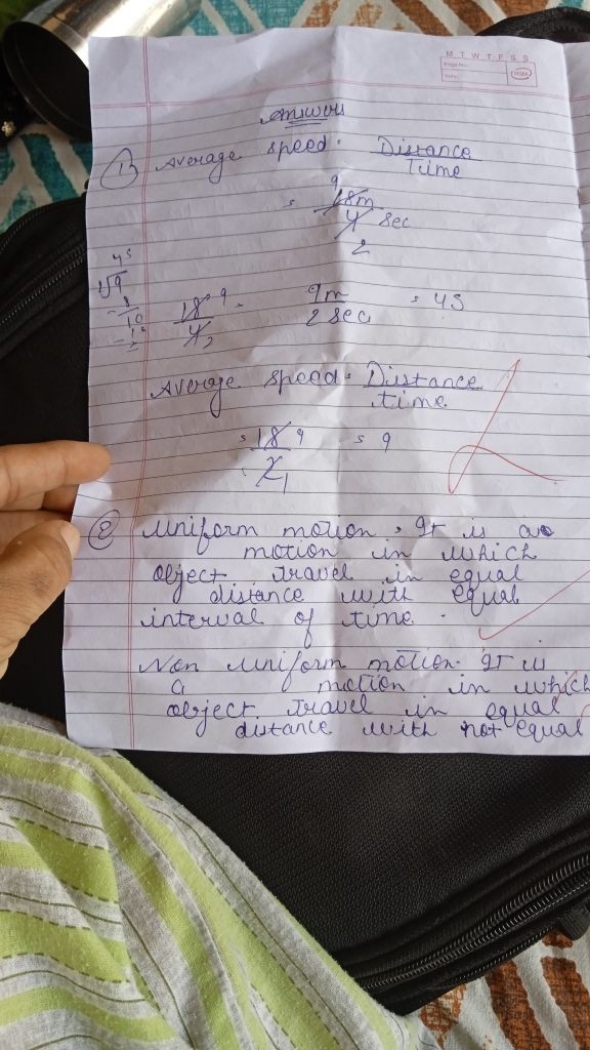 M T W T F S S
Answers
① Average speed = Distance
Time
9
= 18m
4 sec
2
45
√9
-8
10
-10
18 9 =
4 2
9m = 45
2 sec
Average speed = Distance
time
= 18 9 = 9
2 1
② Uniform motion = It is a
motion in which
object travel in equal
distance with equal
interval of time .
Non uniform motion = It is
a motion in which
object travel in equal
distance with not equal